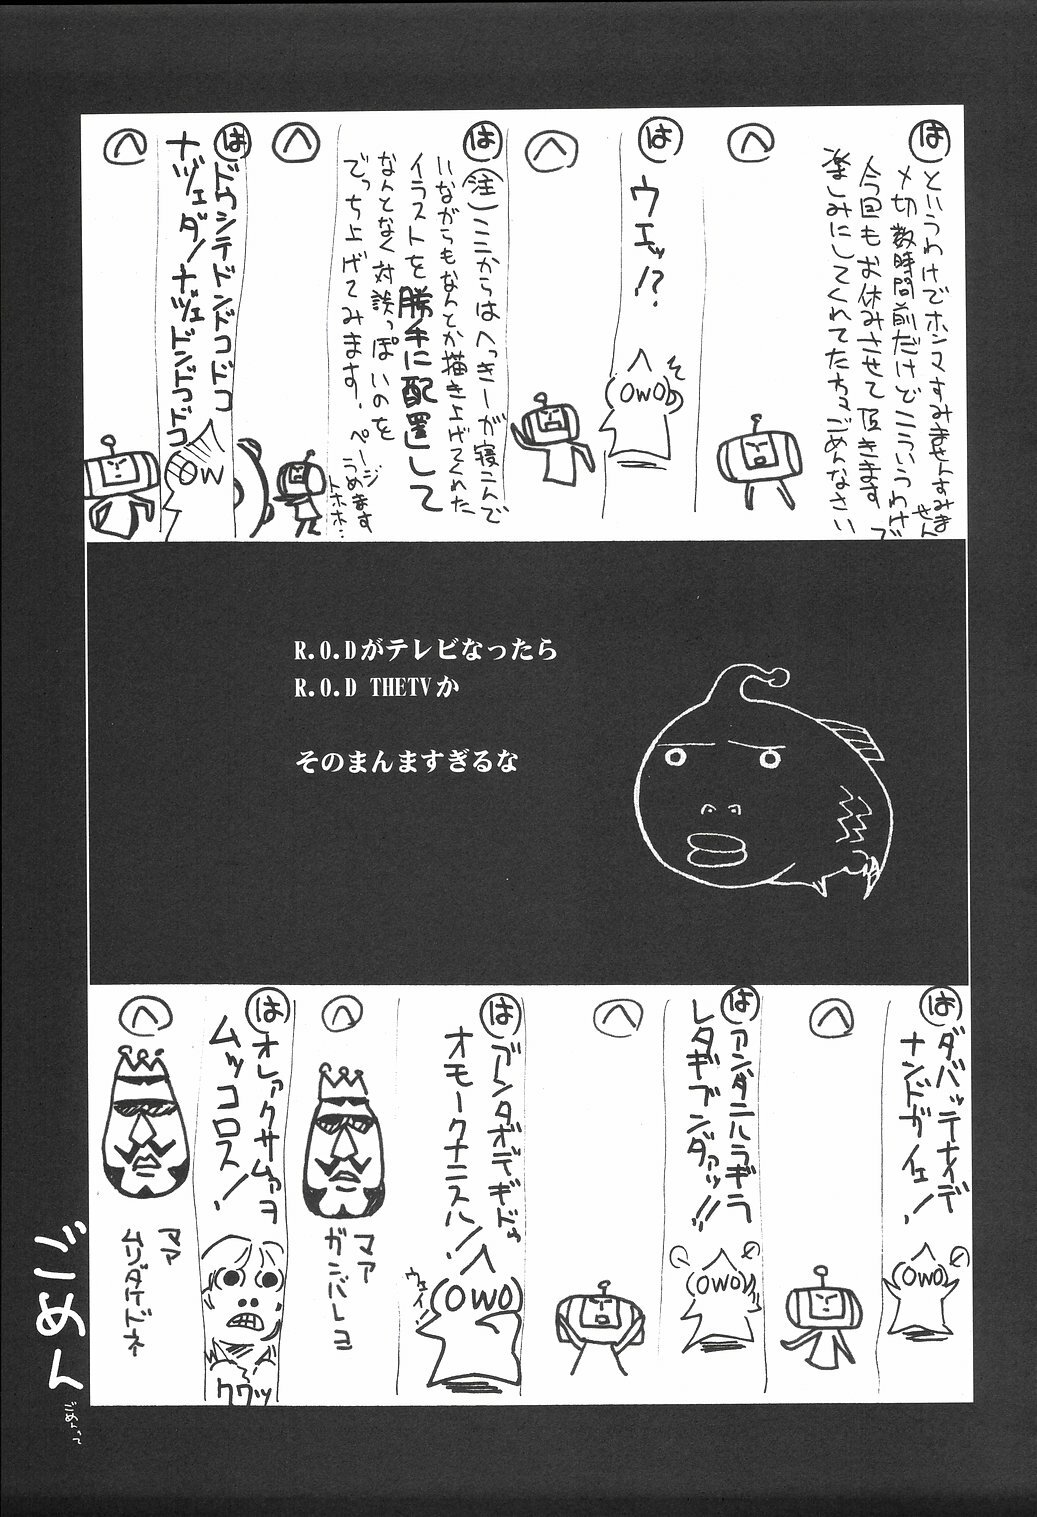 は
というわけでホンマすみませんすみません
〆切数時間前だけどこういうわけで
今回もお休みさせて頂きます
楽しみにしてくれてた方々ごめんなさい
へ
は
ウエッ!?
(OwO)
へ
は
(注)ここからはへっきーが寝こんで
いながらもなんとか描き上げてくれた
イラストを勝手に配置して
なんとなく対談っぽいのを
でっち上げてみます。
ページうめます
トホホ…
へ
は
ドウシテドンドコドコ
ナヅェダ!ナヅェドンドコドコ
OW
へ
R.O.Dがテレビなったら
R.O.D THETVか
そのまんますぎるな
は
ダバッテナイデ
ナンドガイェ!
(OwO)
へ
は
アンダニハラギラ
レタギブンダァッ!!
(OwO)
へ
は
アンタボデギドゥ
オモークナニスハ!
ウェイ!
(OwO)
へ
マア
ガンバレヨ
は
オレァクサムァヲ
ムッコロス!
クワッ
へ
マア
ムリダケドネ
ごめん
ごめんって